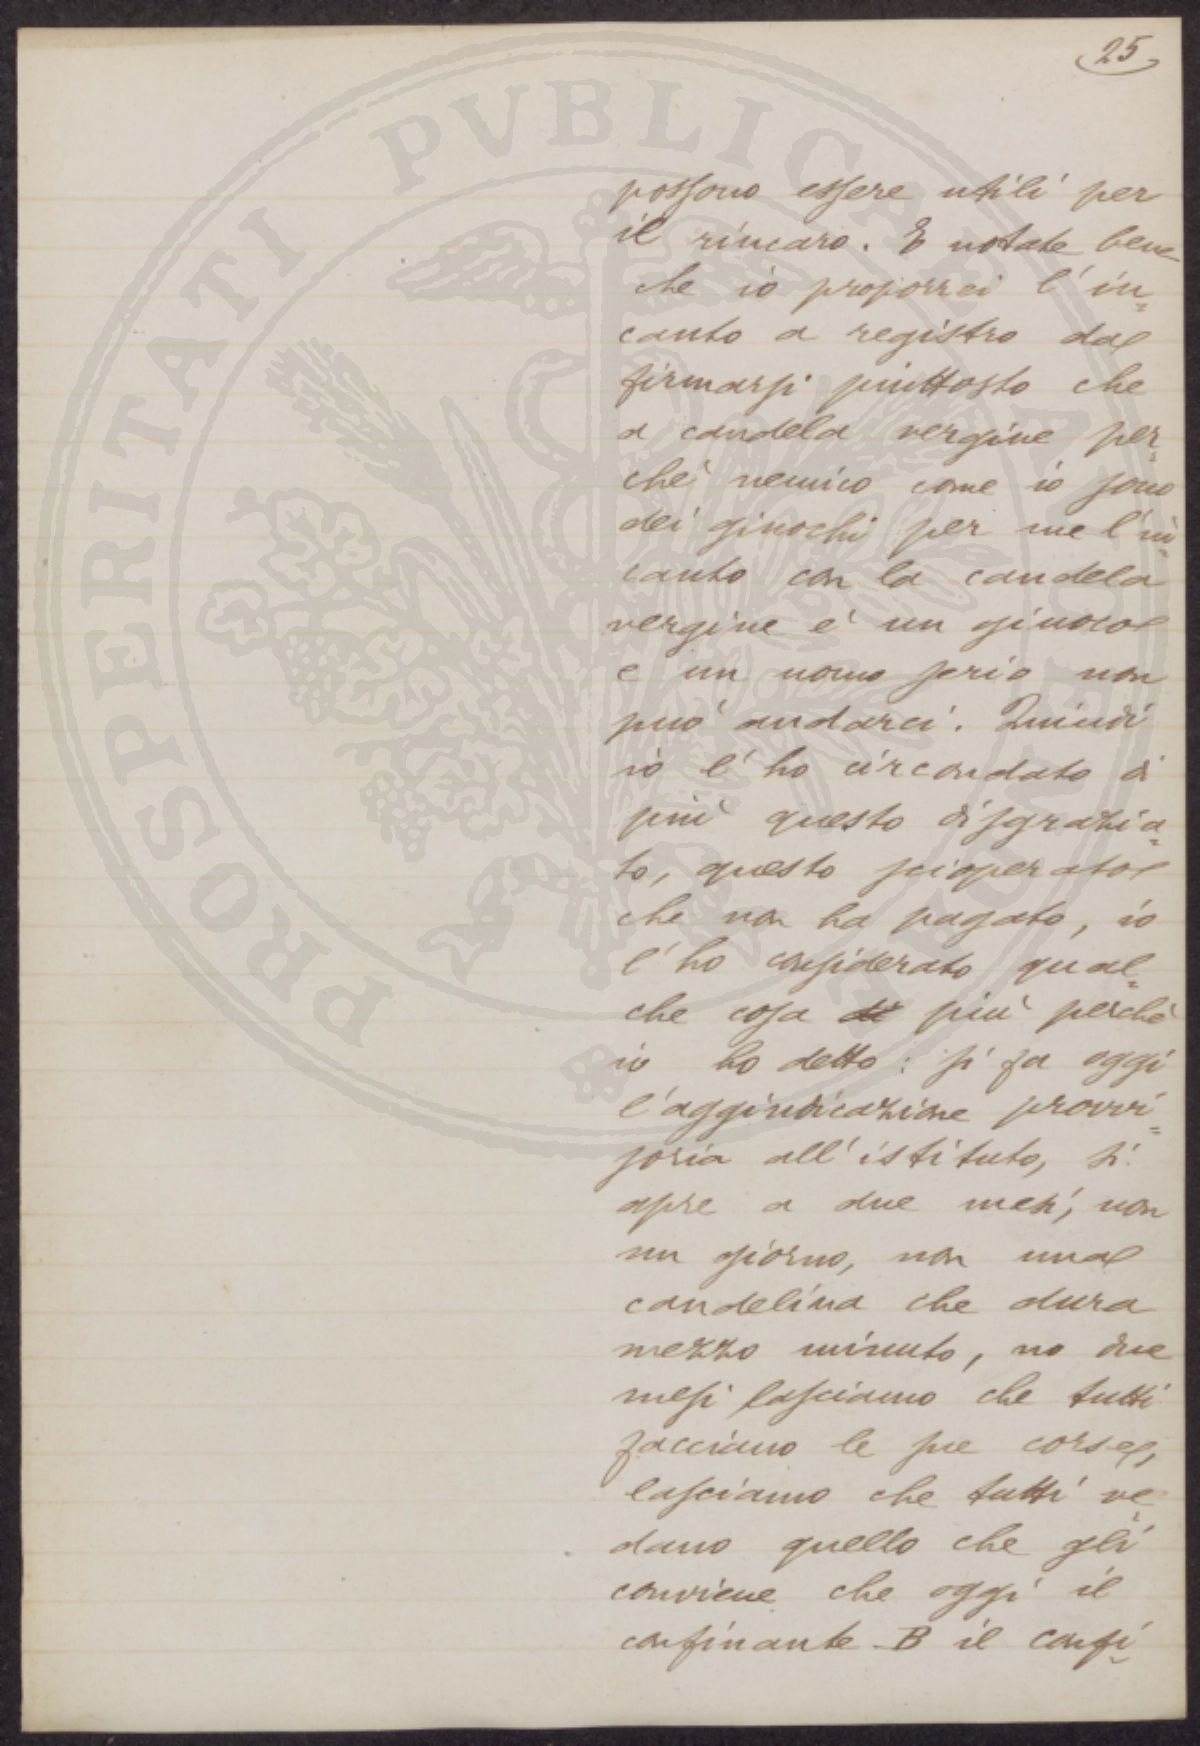 25
PROSPERITATI PVBLICAE AVGENDAE
possono essere utili per
il rincaro. E notate bene
che io proporrei l'in=
canto a registro da
firmarsi piuttosto che
a candela vergine per=
chè nemico come io sono
dei giuochi per me l'in=
canto con la candela
vergine è un giuoco
e un uomo serio non
può andarci. Quindi
io l'ho circondato di
più questo disgrazia=
to, questo scioperato
che non ha pagato, io
l'ho considerato qual=
che cosa di più perchè
io ho detto: si fa oggi
l'aggiudicazione provvi=
soria all'istituto, si
apre a due mesi, non
un giorno, non una
candelina che dura
mezzo minuto, no due
mesi lasciamo che tutti
facciano le sue corse,
lasciamo che tutti ve=
dano quello che gli
conviene che oggi il
confinante B il confi=